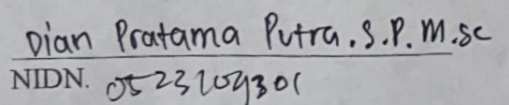 Dian Pratama Putra. S.P. M.sc
NIDN. 0523109301